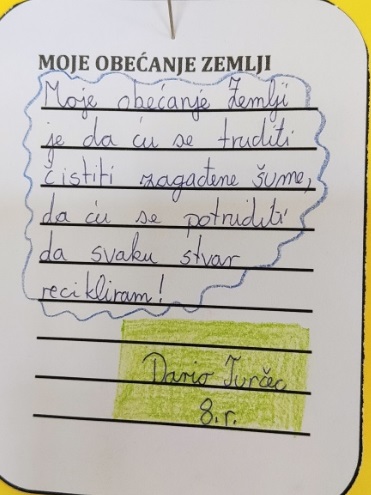 MOJE OBEĆANJE ZEMLJI
Moje obećanje Zemlji
je da ću se truditi
čistiti zagađene šume,
da ću se potruditi
da svaku stvar
recikliram!
Dario Turčec
8.r.